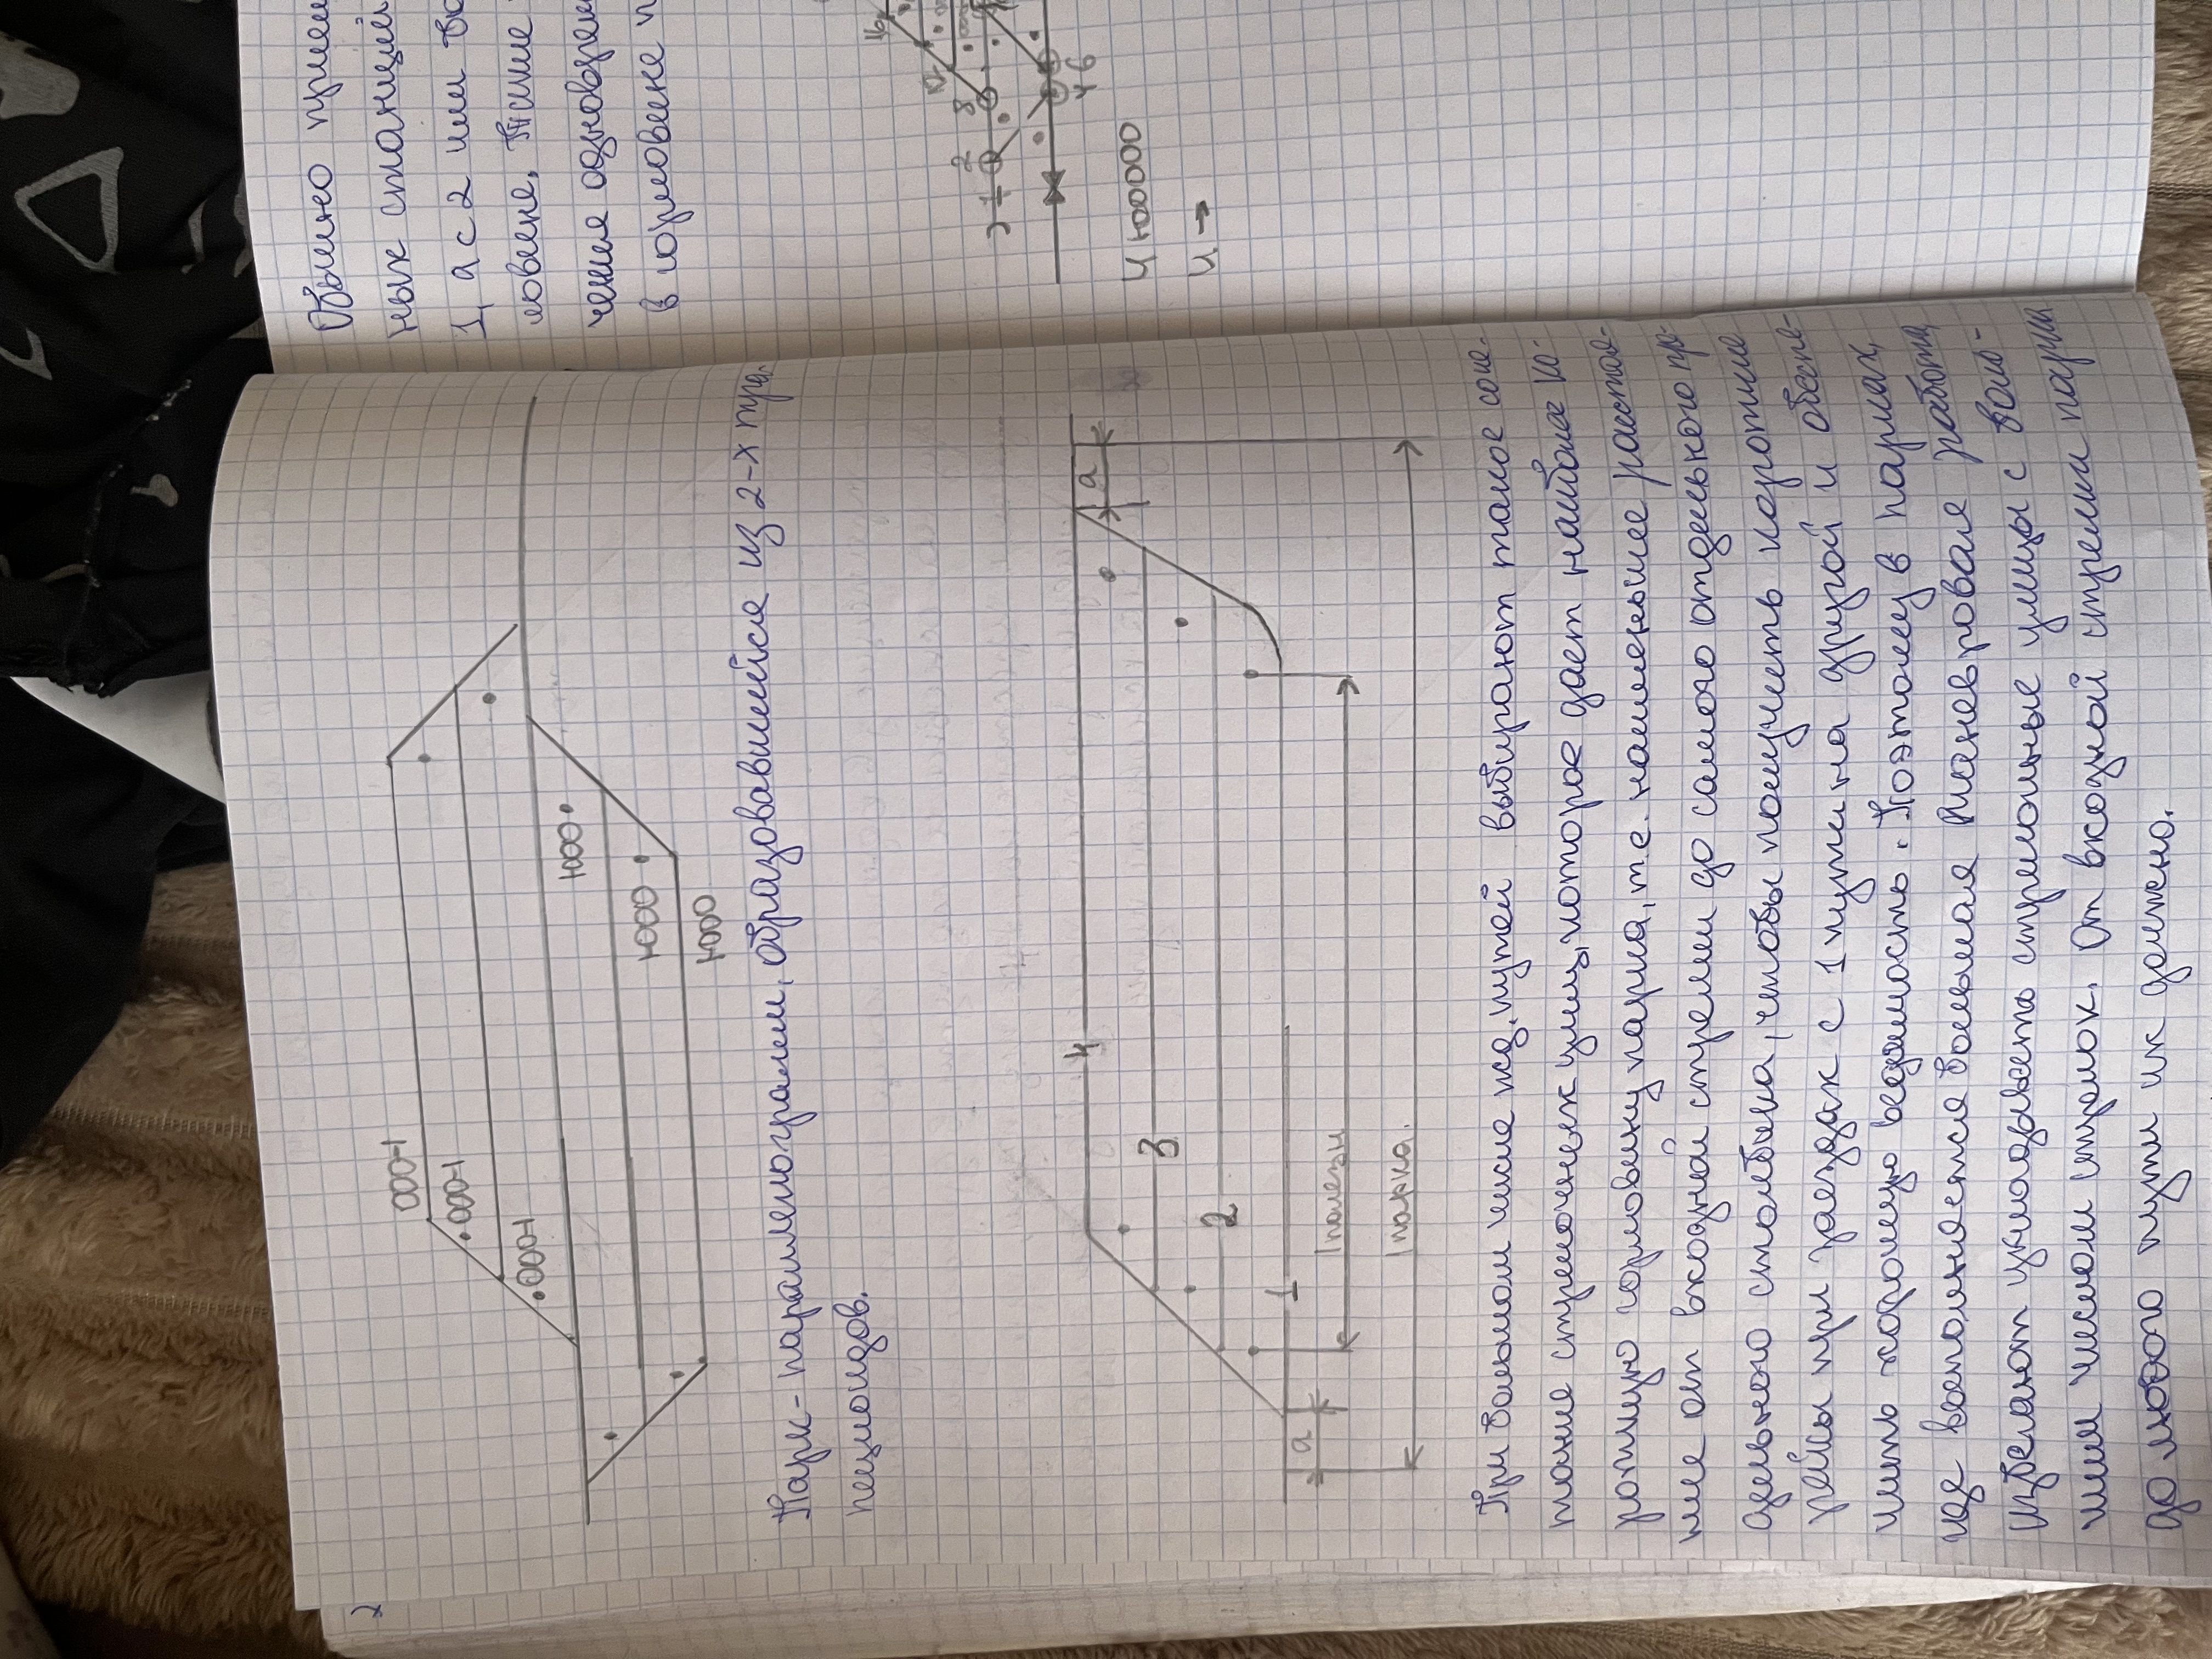 2
000-1
000-1
000-1
1000
1-000
1-000
Парк-параллелограмм, образовавшийся из 2-х тра-
пецоидов.
4
3
2
1
a
a
lполезн
lпарка.
При большом числе жд. путей выбирают такое соче-
тание стрелочных улиц, которое дает наиболее ко-
роткую горловину парка, т.е. наименьшее расстоя-
ние от входной стрелки до самого отдельного пр-
едельного столбика, чтобы получить короткие
рейсы при заездах с 1 пути на другой и обеспе-
чить хорошую видимость. Поэтому в парках,
где выполняется большая маневровая работа,
избегают укладывать стрелочные улицы с боль-
шим числом стрелок. От входной стрелки парка
до любого пути их должно.
Обычно приме
ных станций
1, а с 2 или бо
ловине. Такие
чения одновремен
в горловине
2
8
4 6
Ч 1-000000
Ч →